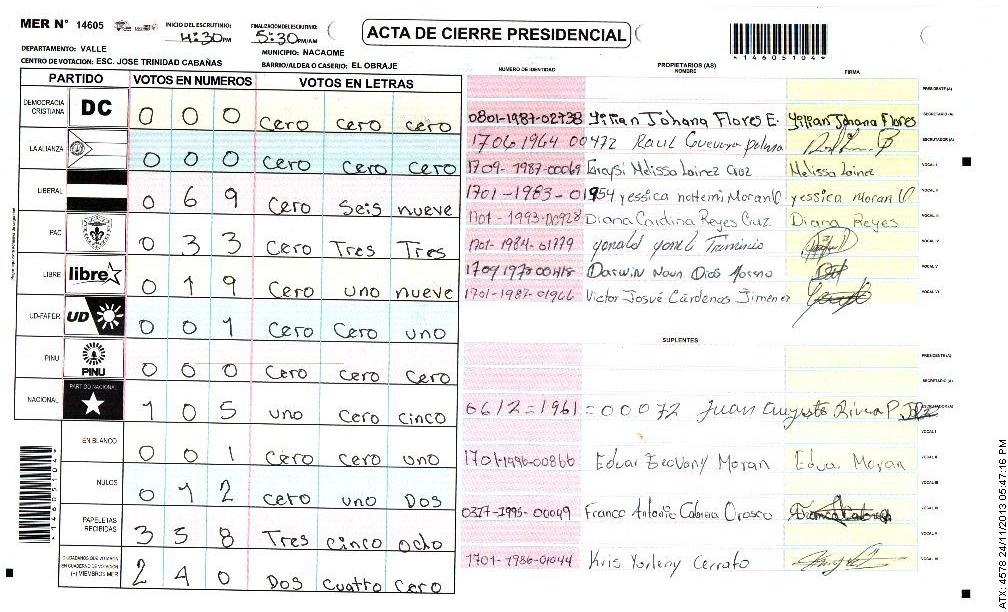 MER N° 14605
INICIO DEL ESCRUTINIO: 4:30 PM
FINALIZACIÓN DEL ESCRUTINIO: 5:30 PM/AM
ACTA DE CIERRE PRESIDENCIAL
*14605104*
DEPARTAMENTO: VALLE
MUNICIPIO: NACAOME
CENTRO DE VOTACION: ESC. JOSE TRINIDAD CABAÑAS
BARRIO/ALDEA O CASERIO: EL OBRAJE
PARTIDO VOTOS EN NUMEROS VOTOS EN LETRAS
DEMOCRACIA CRISTIANA DC 0 0 0 cero cero cero
LA ALIANZA 0 0 0 cero cero cero
LIBERAL 0 6 9 Cero Seis nueve
PAC 0 3 3 Cero Tres Tres
LIBRE libre 0 1 9 Cero uno nueve
UD-FAPER UD 0 0 1 Cero Cero uno
PINU PINU 0 0 0 Cero cero cero
NACIONAL PARTIDO NACIONAL 1 0 5 uno Cero cinco
EN BLANCO 0 0 1 Cero cero uno
NULOS 0 1 2 cero uno Dos
PAPELETAS RECIBIDAS 3 5 8 Tres cinco ocho
CIUDADANOS QUE VOTARON EN CUADERNO DE VOTACION (+) MIEMBROS MER 2 4 0 Dos cuatro cero
*14605104*
NUMERO DE IDENTIDAD PROPIETARIOS (AS) NOMBRE FIRMA
PRESIDENTE (A)
0801-1987-02738 Yilian Johana Flores E. Yilian Johana Flores SECRETARIO (A)
1706 1964 00472 Raul Guevara ESCRUTADOR (A)
1709-1987-00069 Melissa Lainez Cruz Melissa Lainez VOCAL I
1701-1983-01954 yessica nohemi Moran yessica moran VOCAL II
1701-1993-00928 Diana Carolina Reyes Cruz Diana Reyes VOCAL III
1701-1984-01779 VOCAL IV
1709 1978 00418 Darwin Noun Dios Moreno VOCAL V
1701-1987-01966 Victor Josué Cárdenas Jimenez VOCAL VI
SUPLENTES
PRESIDENTE (A)
SECRETARIO (A)
0612=1961=00072 Juan Augusto Rivera P.
VOCAL I
1701-1996-00866 Eduar Geovany Moran Eduar Moran VOCAL II
VOCAL III
Franco Antonio Cabrera Orosco VOCAL IV
1701-1986-01044 Kris Yorleny Cerrato
ATX: 4578 24/11/2013 05:47:16 PM